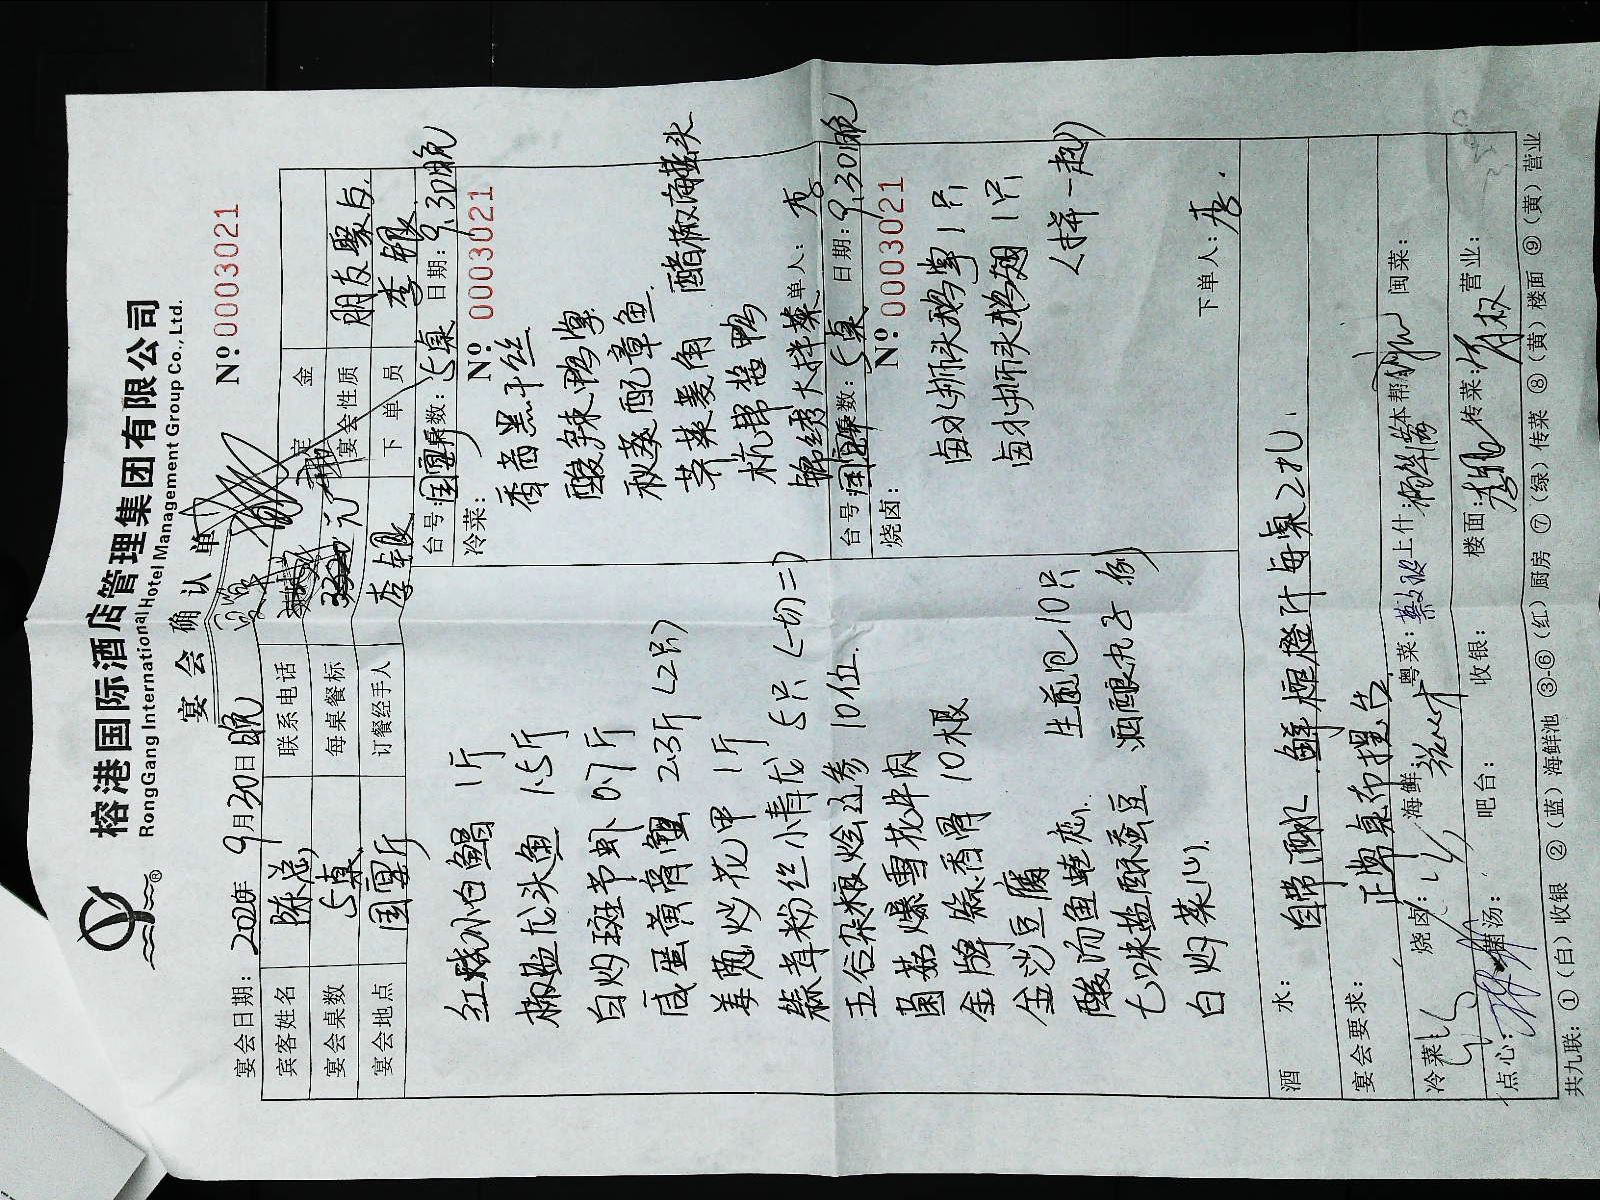 榕港国际酒店管理集团有限公司
RongGang International Hotel Management Group Co., Ltd.
®
宴会确认单
Nº:0003021
宴会日期: 2020年 9月30日 晚
宾客姓名 陈总 联系电话 定金
宴会桌数 5桌 每桌餐标 元 宴会性质 朋友聚会
宴会地点 国宴厅 订餐经手人 李银 下单员 李银
红烧小白鲳 1斤
椒盐龙头鱼 1.5斤
白灼斑节虾 0.7斤
咸蛋黄膏蟹 2.3斤(2只)
姜葱炒花甲 1斤
蒜茸粉丝小青龙 5只(一切二)
五谷杂粮烩辽参 10位
菌菇爆雪花牛肉
金牌蒜香骨 10根
金沙豆腐 生煎包10只
酸汤鱼
七味盐酥蚕豆 酒酿丸子(例)
白灼菜心
台号: 国宴 桌数: 5桌 日期: 9.30晚
冷菜: Nº:0003021
香茜黑干丝
酸辣鸭掌
秋葵配章鱼
荠菜菱角 醋椒海蜇头
杭帮酱鸭
锦绣大拌菜
下单人: 李
台号: 国宴 桌数: 5桌 日期: 9.30晚
烧卤: Nº:0003021
卤水狮头鹅掌1只
卤水狮头鹅翅1只
(拼一起)
下单人: 李.
酒水: 自带酒水 鲜榨橙汁每桌2扎.
宴会要求: 正常桌布摆台
冷菜: 烧卤: 海鲜: 粤菜: 上什: 本帮: 闽菜:
点心: 煲汤: 吧台: 收银: 楼面: 李银 传菜: 营业:
共九联: ①(白)收银 ②(蓝)海鲜池 ③-⑥(红)厨房 ⑦(绿)传菜 ⑧(黄)楼面 ⑨(黄)营业